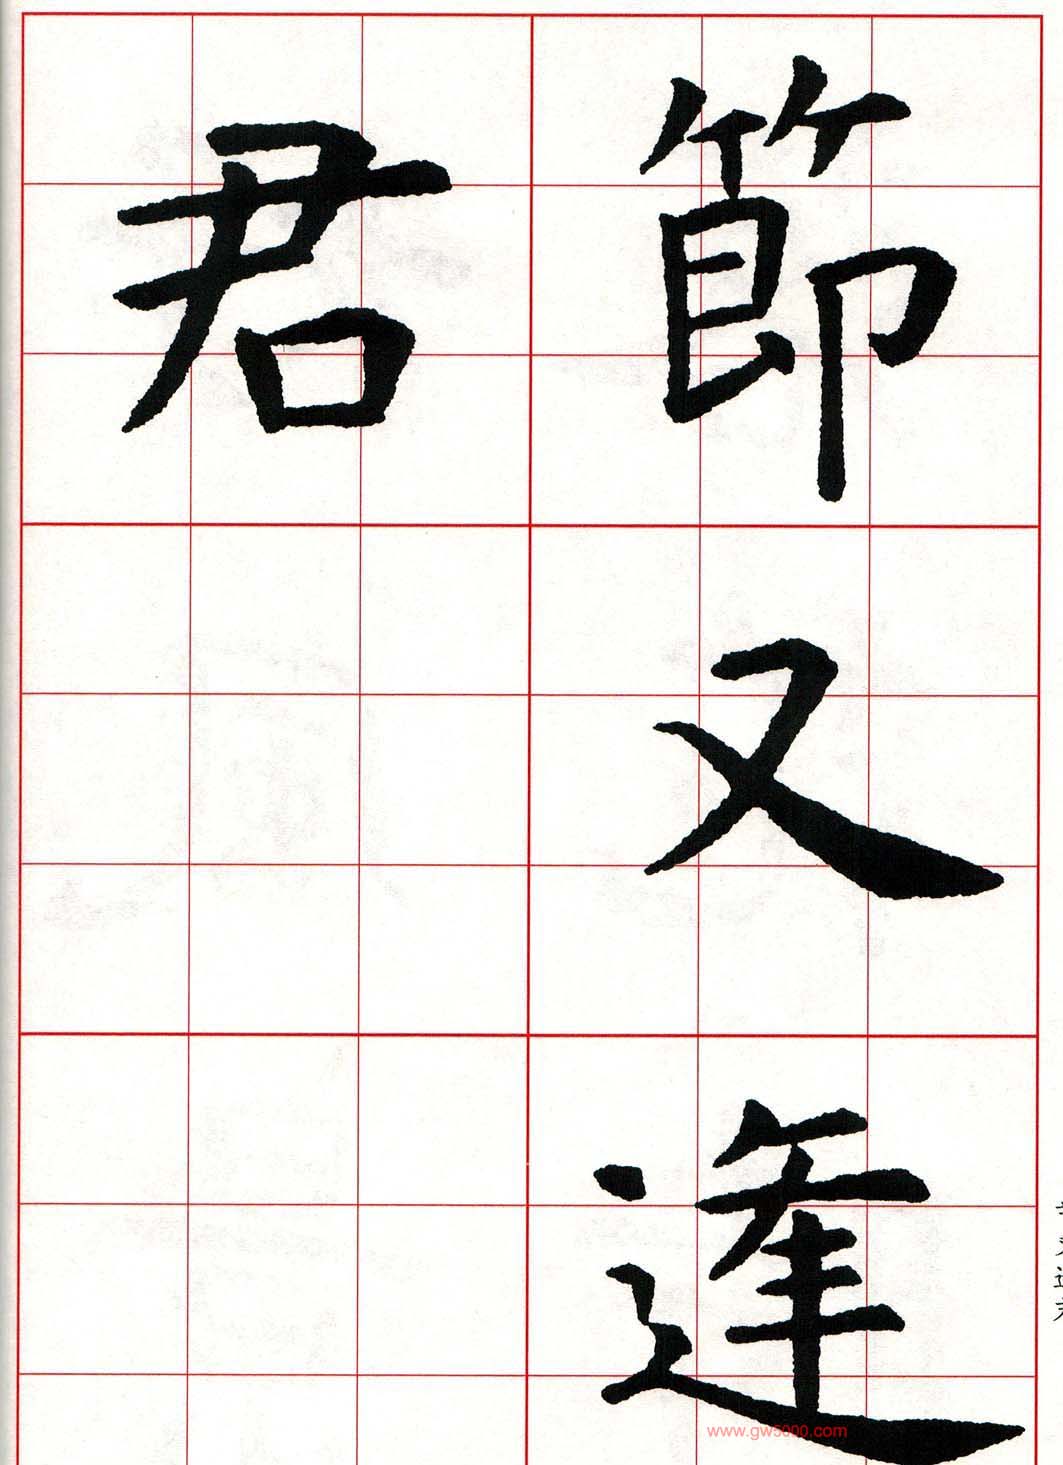 節又逢
君
www.gw5000.com